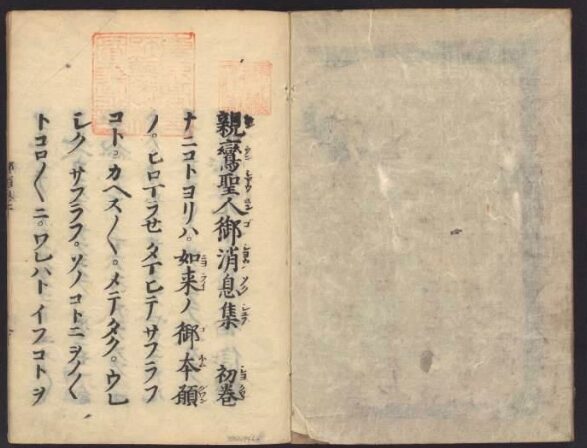 親鸞聖人御消息集 初巻
ナニコトヨリハ。如来ノ御本願
ノ。ヒロマラせタマヒテサフラフ
コト。カヘス〱。メテタク。ウレ
シクサフラフ。ソノコトニヲノ〱
トコロ〱ニ。ワレハトイフコトヲ